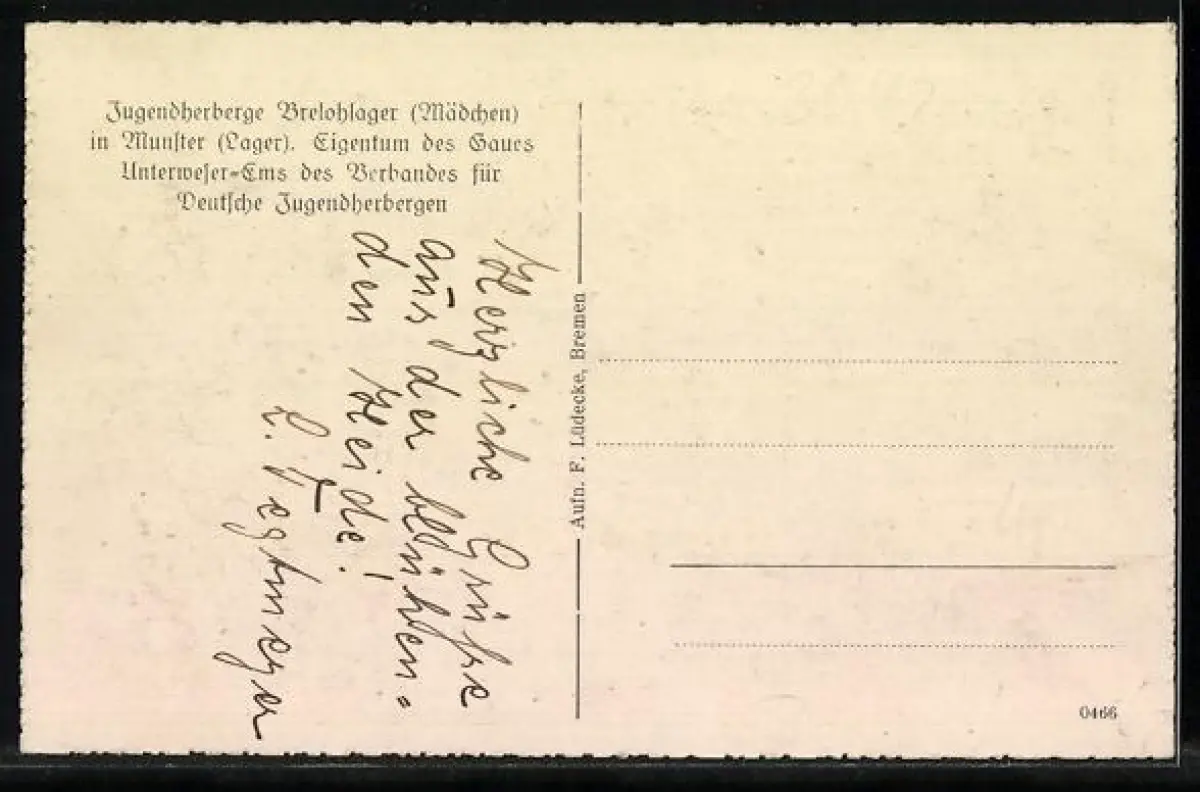 Jugendherberge Brelohlager (Mädchen)
in Munster (Lager). Eigentum des Gaues
Unterweser-Ems des Verbandes für
Deutsche Jugendherbergen
Herzliche Grüße
aus der blühen-
den Heide!
L. Tegtmeyer
Aufn. F. Lüdecke, Bremen
0466